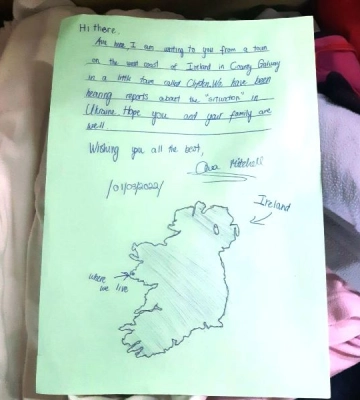 Hi there,
I am writing to you from a town
on the west coast of Ireland in County Galway
in a little town called Clifden. We have been
hearing reports about the "situation" in
Ukraine. Hope you and your family are
well
Wishing you all the best,
Mitchell
/01/03/2022/
Ireland
where
we live